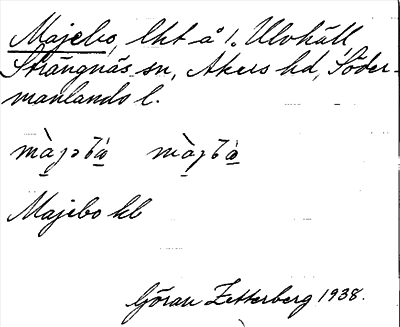 Majebo, lht å 1. Ulvhäll
Strängnäs sn, Åkers hd, Söder-
manlands l.
Majebo kb
Göran Zetterberg 1938.